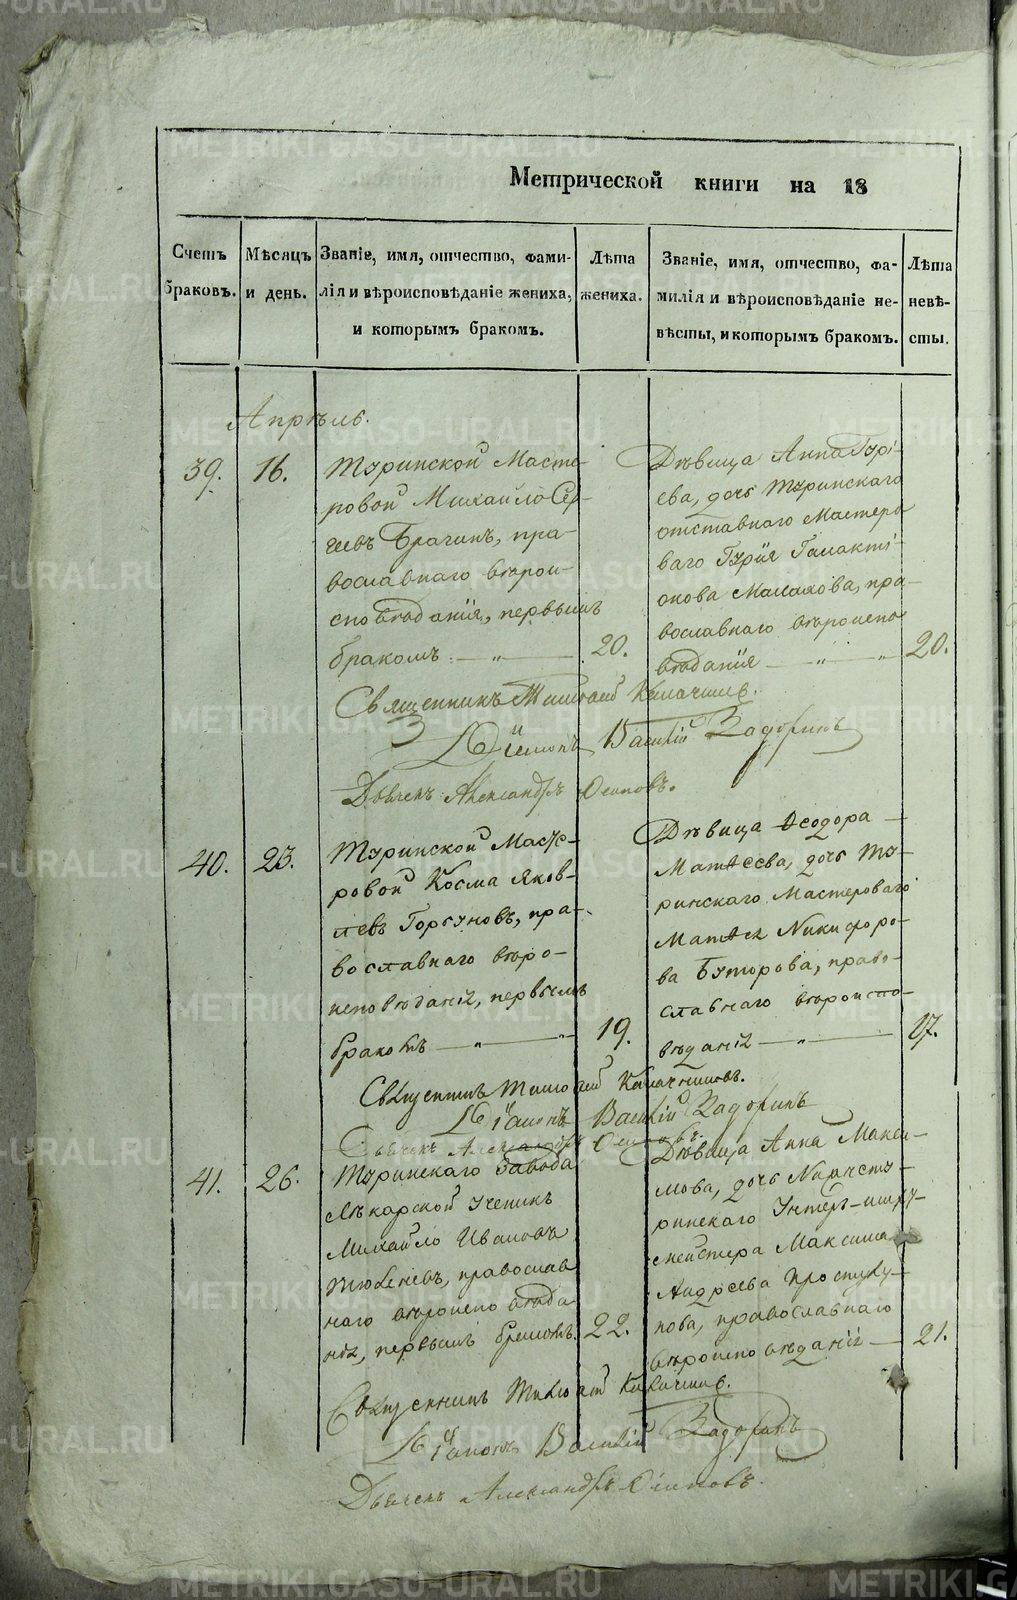 METRIKI.GASO-URAL.RU
Метрической книги на 18
Счетъ браковъ.
Мѣсяцъ и день.
Званіе, имя, отчество, фами-
лія и вѣроисповѣданіе жениха,
и которымъ бракомъ.
Лѣта
жениха.
Званіе, имя, отчество, фа-
милія и вѣроисповѣданіе не-
вѣсты, и которымъ бракомъ.
Лѣта
невѣ-
сты.
Апрѣль.
39. 16.
Туринской Масте-
ровой Михайло Сер-
геевъ Брагинъ, пра-
вославнаго вѣрои-
сповѣданія, первымъ
бракомъ. — „ — 20.
Дѣвица Анна Гурі-
ева, дочь Туринскаго
отставнаго Мастеро
ваго Гурія Галакті-
онова Малахова, пра-
вославнаго вѣроиспо
вѣданія — „ — „ 20.
Священникъ Тимофей
Діаконъ Василій Задоринъ
Дьячекъ Александръ Осиповъ.
40. 23.
Туринской Масте-
ровой Косма Яков-
левъ Горбуновъ, пра-
вославнаго вѣро-
исповѣданія, первымъ
бракомъ — „ — „ 19.
Дѣвица Ѳеодора —
Матѳеева, дочь Ту-
ринскаго Мастероваго
Матѳея Никифоро-
ва Буторова, право-
славнаго вѣроиспо-
вѣданія — „ — 17.
Священникъ Тимофей
Діаконъ Василій Задоринъ
Дьячекъ Александръ Осиповъ.
41. 26.
Туринскаго Завода
Лѣкарской Ученикъ
Михайло Ивановъ
Тюленевъ, православ
наго вѣроисповѣда
нія, первымъ бракомъ. 22.
Дѣвица Анна Макси-
мова, дочь Нижнету-
ринскаго Унтеръ-шихт-
мейстера Максима
Андреева
нова, православнаго
вѣроисповѣданія — 21.
Священникъ Тимофей
Діаконъ Василій Задоринъ
Дьячекъ Александръ Осиповъ.